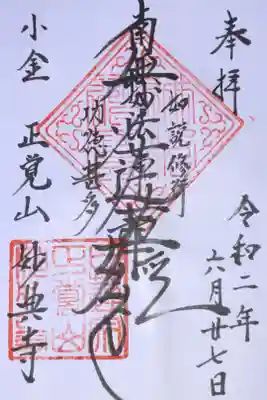 奉拝
令和二年
六月廿七日
如説修行
南無妙法蓮華経
功徳甚多
小金 正覚山
妙典寺